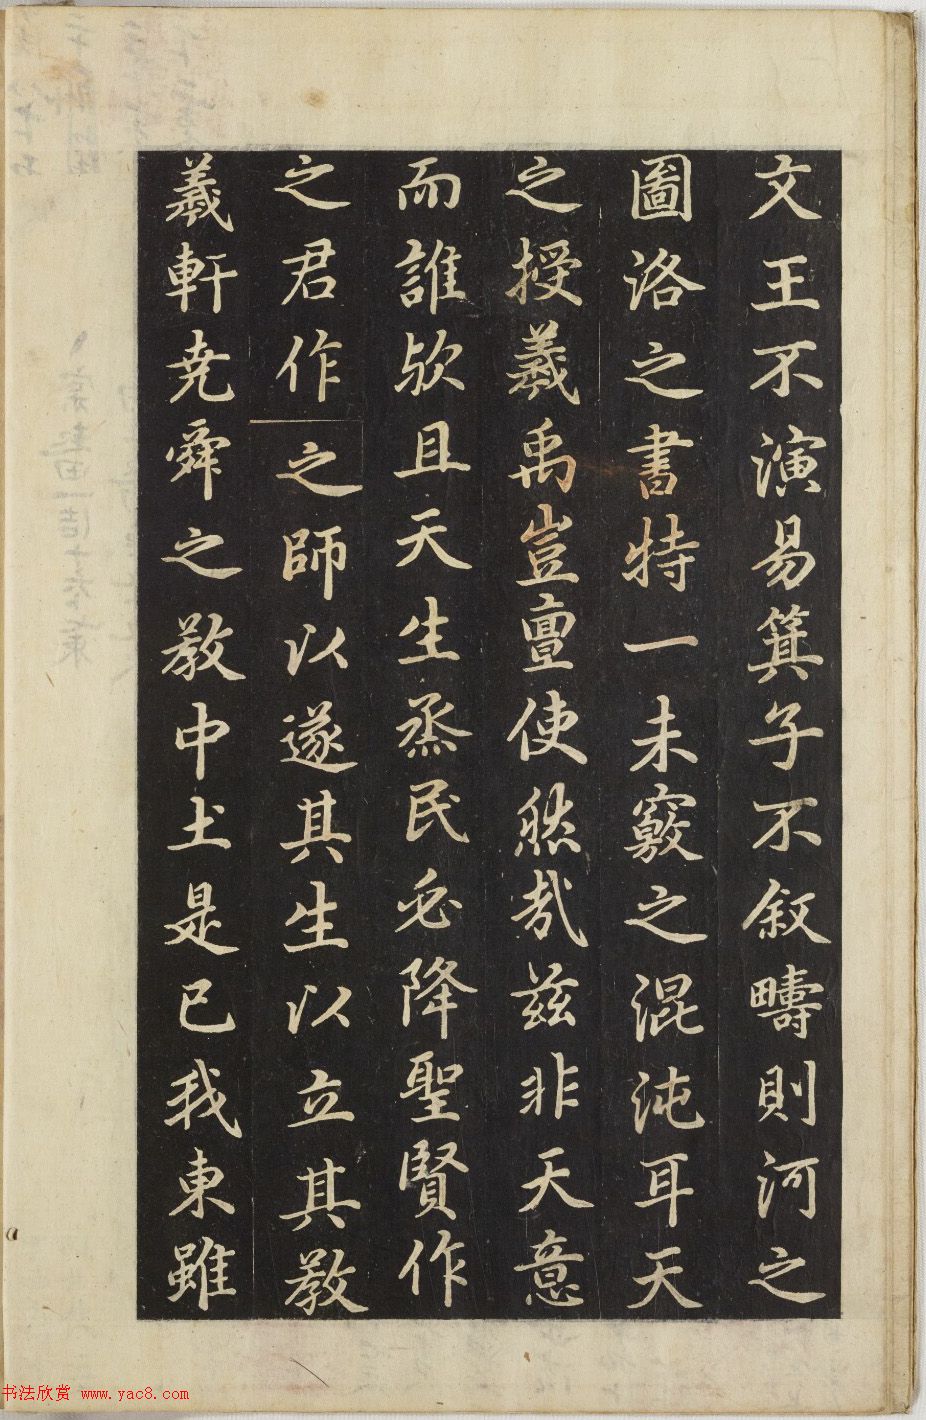 文王不演易箕子不叙疇則河之
圖洛之書特一未竅之混沌耳天
之授羲禹豈亶使然哉兹非天意
而誰欤且天生烝民必降聖賢作
之君作之師以遂其生以立其教
羲軒尭舜之教中土是已我東雖
书法欣赏 www.yac8.com